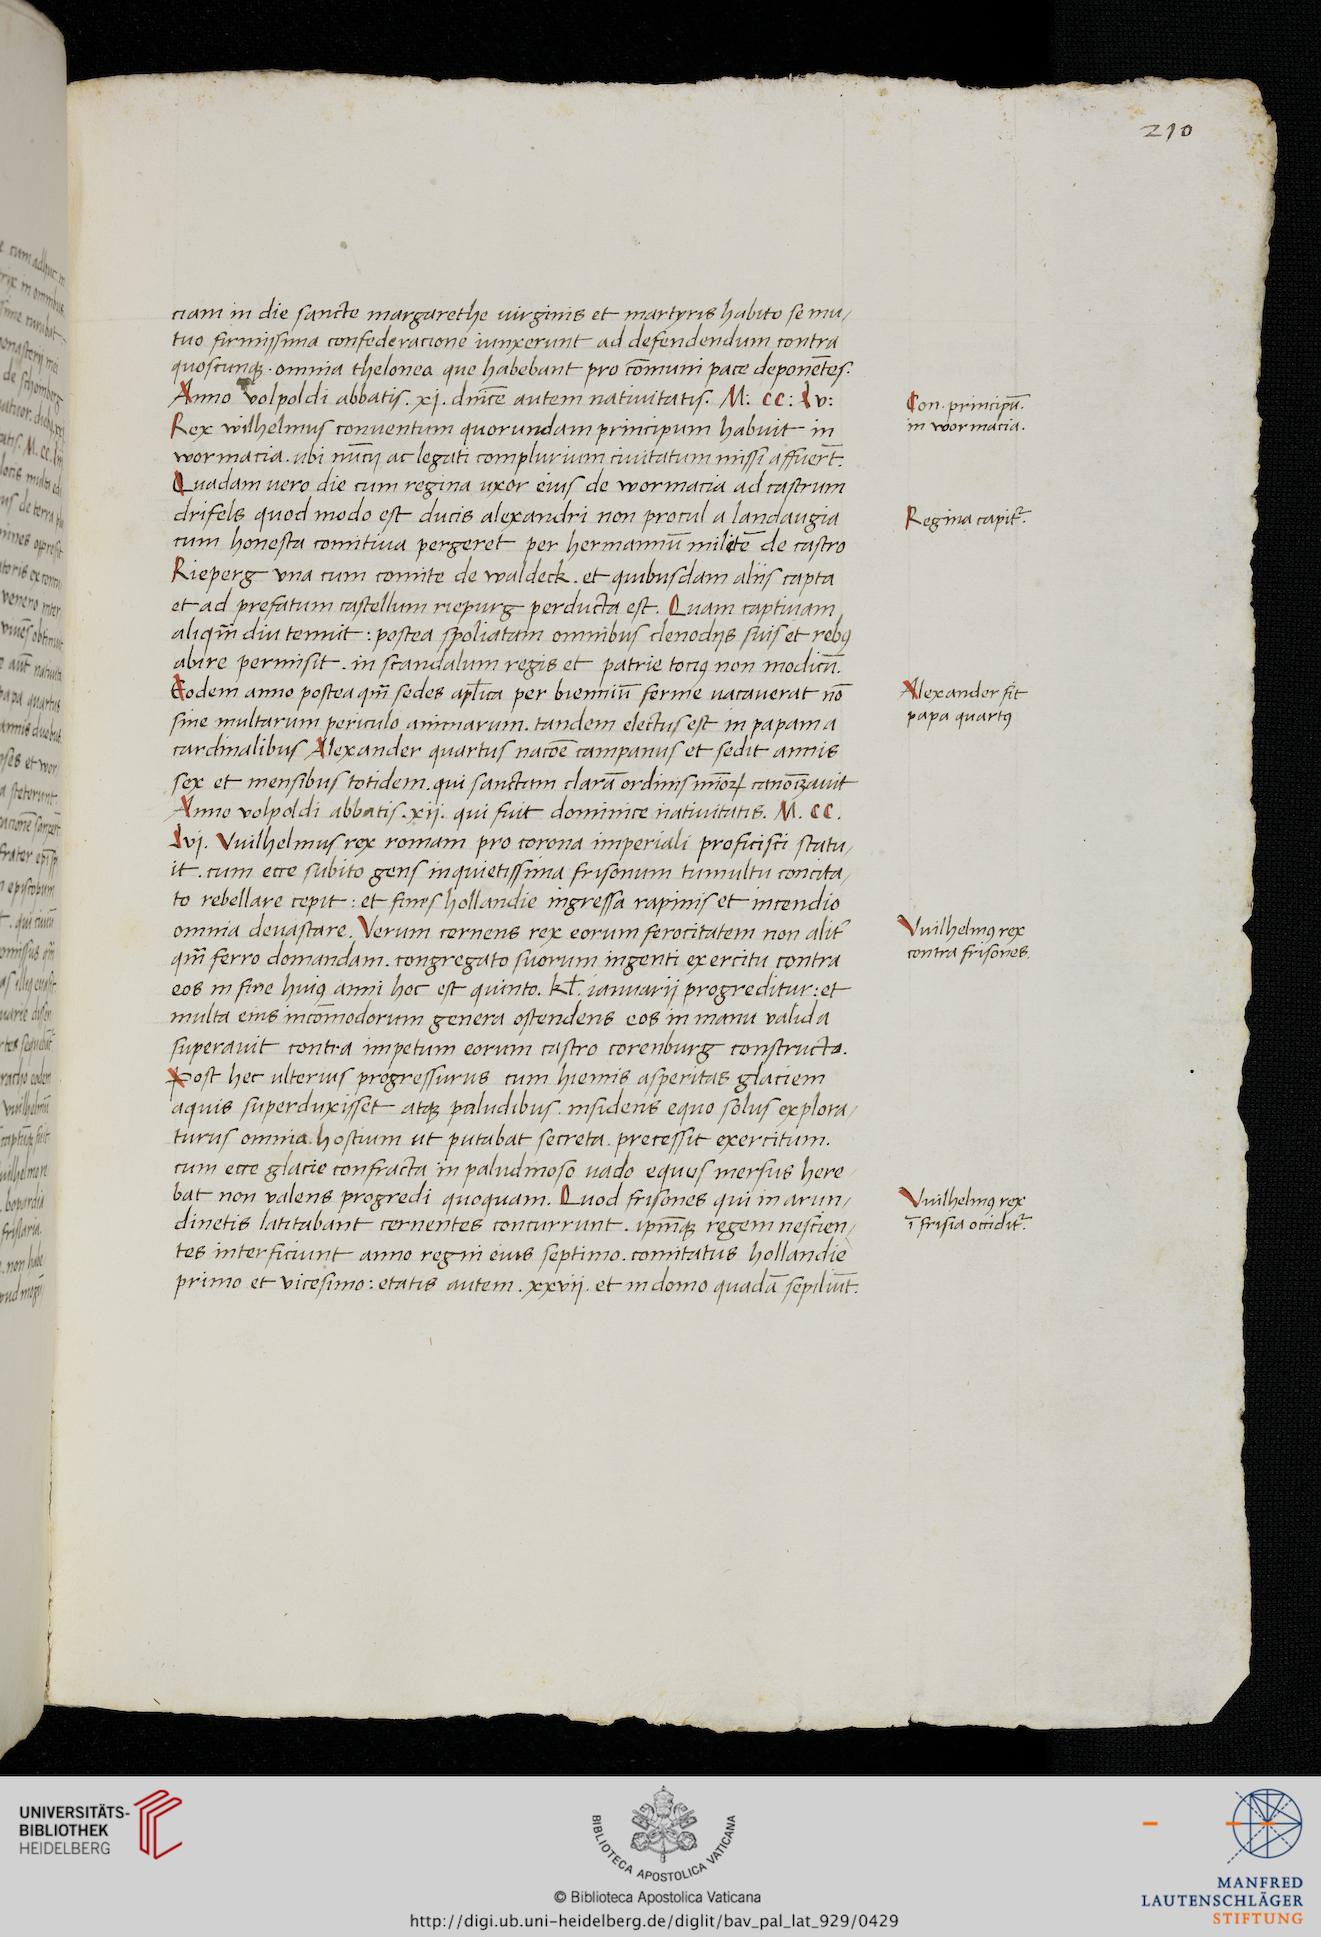 210
ciam in die sancte margarethe uirginis et martyris habito se mu/
tuo firmissima confederacione iunxerunt ad defendendum contra
quoscunqꝫ · omnia thelonea que habebant pro cōmuni pace deponētes.
Anno volpoldi abbatis . xj . dnīce autem natiuitatis . M: cc: lv:
Rex wilhelmus conuentum quorundam principum habuit in
wormacia . ubi nūcij ac legati complurium ciuitatum missi affuerūt.
Quadam uero die cum regina uxor eius de wormacia ad castrum
drifels quod modo est ducis alexandri non procul a landaugia
cum honesta comitiua pergeret per hermannū militē de castro
Rieperg vna cum comite de waldeck . et quibusdam aliis capta
et ad prefatum castellum riepurg perducta est. Quam captiuam
aliqm̄ diu tenuit : postea spoliatam omnibus clenodijs suis et rebꝯ
abire permisit . in scandalum regis et patrie tociꝯ non modicū.
Eodem anno postea qm̄ sedes apl̄ica per bienniū ferme uacauerat nō
sine multarum periculo animarum . tandem electus est in papam a
cardinalibus Alexander quartus nacōe campanus et sedit annis
sex et mensibus totidem . qui sanctam clarā ordinis mīoꝝ canonizauit
Anno volpoldi abbatis . xij . qui fuit dominice natiuitatis. M. cc.
lvj. Vuilhelmus rex romam pro corona imperiali proficisci statu/
it . cum ecce subito gens inquietissima frisonum tumultu concita/
to rebellare cepit : et fines hollandie ingressa rapinis et incendio
omnia deuastare. Verum cernens rex eorum ferocitatem non alit᷑
qm̄ ferro domandam . congregato suorum ingenti exercitu contra
eos in fine huiꝯ anni hoc est quinto . kl̄. ianuarij progreditur : et
multa eius incōmodorum genera ostendens eos in manu valida
superauit contra impetum eorum castro corenburg constructo.
Post hec ulterius progressurus cum hiemis asperitas glaciem
aquis superduxisset atqꝫ paludibus . insidens equo solus explora/
turus omnia hostium ut putabat secreta . precessit exercitum.
cum ecce glacie confracta in paludinoso uado equus mersus here/
bat non valens progredi quoquam. Quod frisones qui in arun/
dinetis latitabant cernentes concurrunt . ipm̄qꝫ regem nescien/
tes interficiunt anno regni eius septimo . comitatus hollandie
primo et vicesimo : etatis autem . xxvij . et in domo quadā sepeliūt.
Con. principū.
in wormacia.
Regina capit᷑.
Alexander fit
papa quartꝯ
Vuilhelmꝯ rex
contra frisones.
Vuilhelmꝯ rex
ī frisia occidit᷑.
UNIVERSITÄTS-
BIBLIOTHEK
HEIDELBERG
BIBLIOTECA APOSTOLICA VATICANA
© Biblioteca Apostolica Vaticana
http://digi.ub.uni-heidelberg.de/diglit/bav_pal_lat_929/0429
MANFRED
LAUTENSCHLÄGER
STIFTUNG